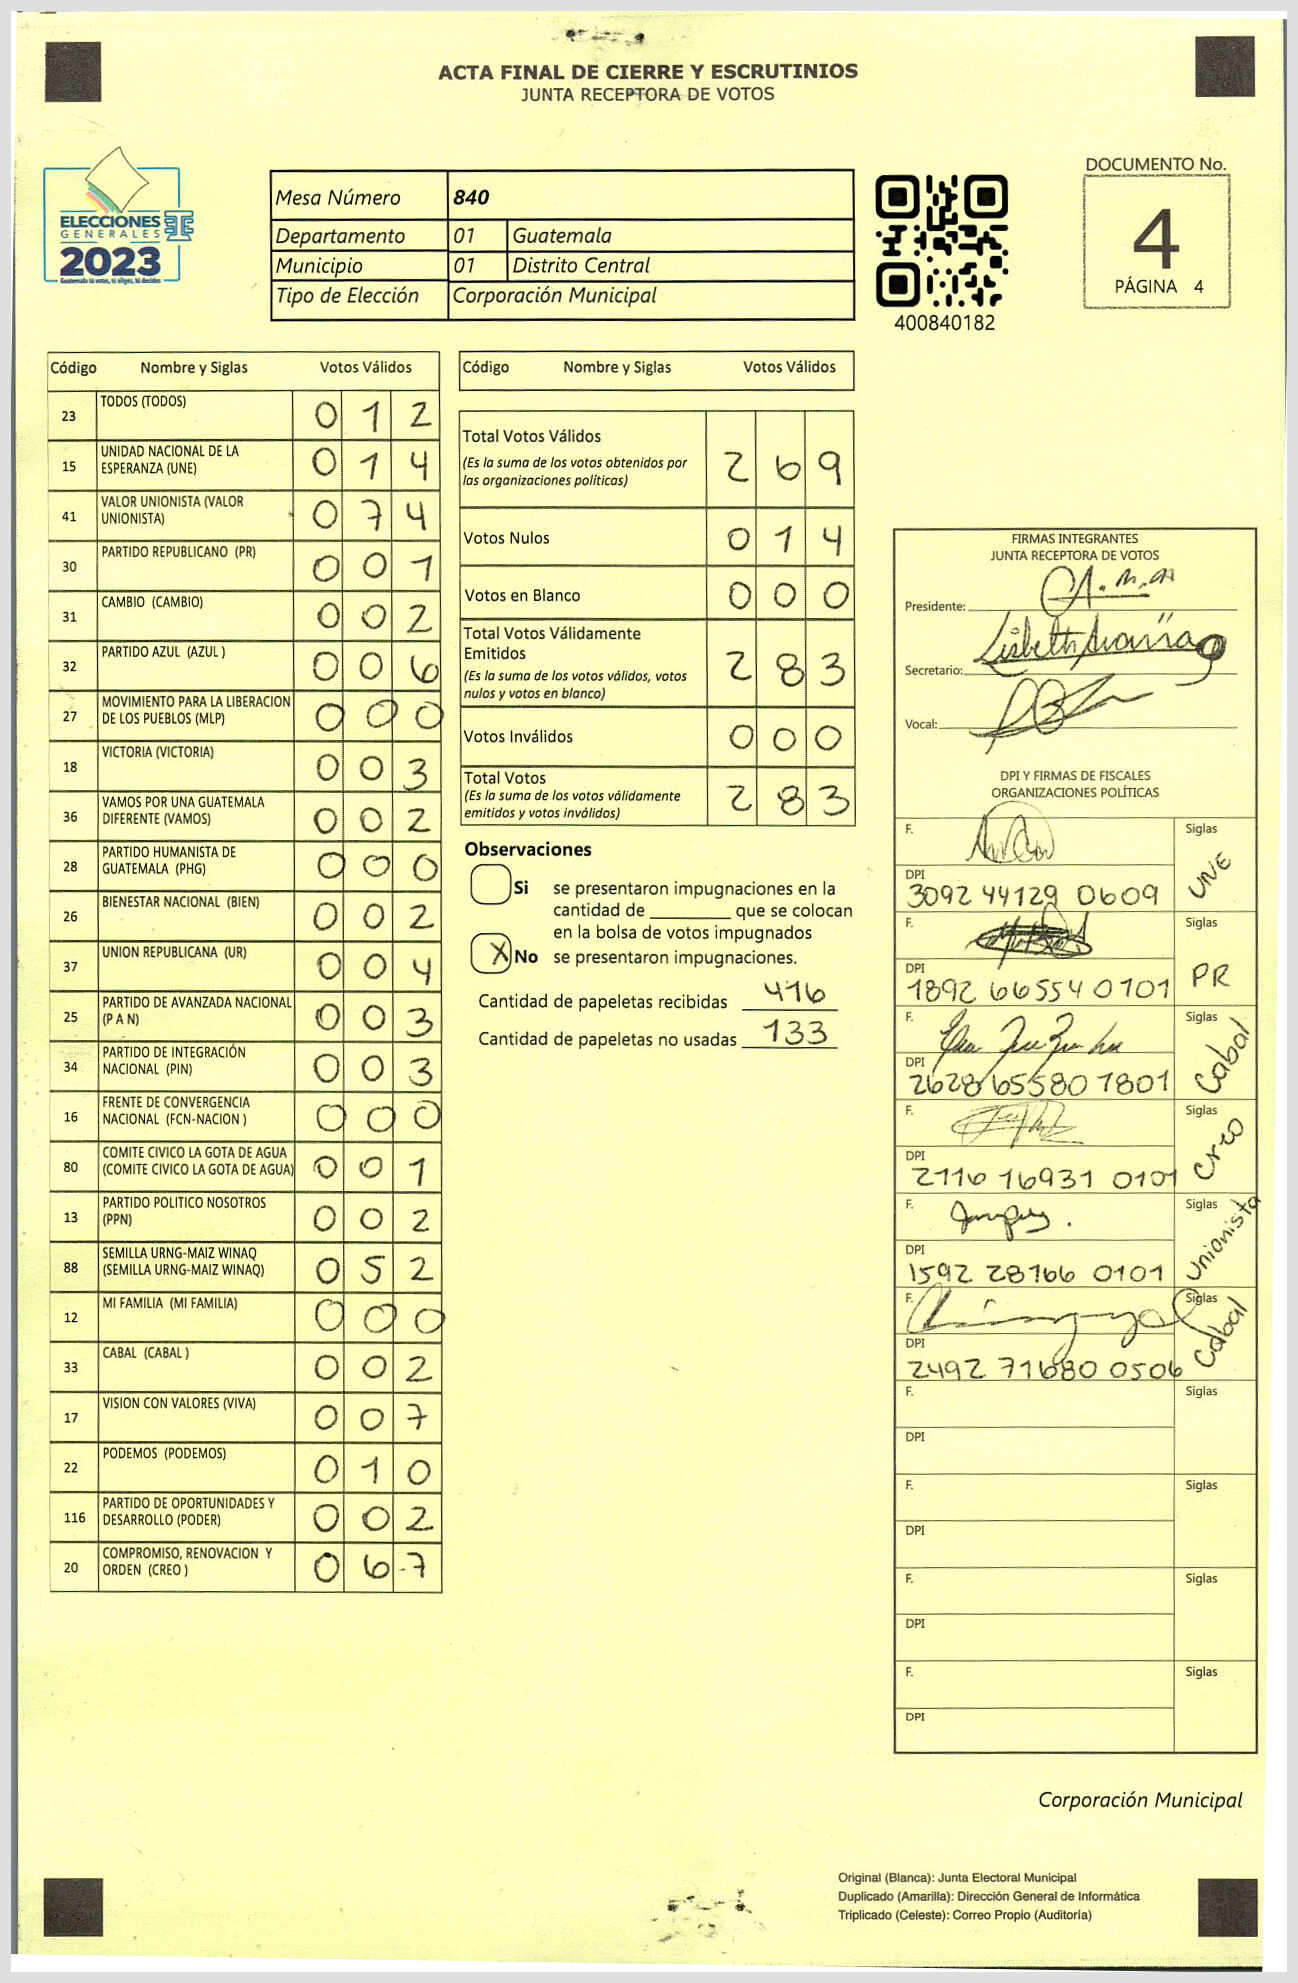 ACTA FINAL DE CIERRE Y ESCRUTINIOS
JUNTA RECEPTORA DE VOTOS
ELECCIONES
GENERALES
2023
Guatemala tú votas, tú eliges, tú decides
Mesa Número 840
Departamento 01 Guatemala
Municipio 01 Distrito Central
Tipo de Elección Corporación Municipal
400840182
DOCUMENTO No.
4
PÁGINA 4
Código Nombre y Siglas Votos Válidos
23 TODOS (TODOS) 0 1 2
15 UNIDAD NACIONAL DE LA ESPERANZA (UNE) 0 1 4
41 VALOR UNIONISTA (VALOR UNIONISTA) 0 7 4
30 PARTIDO REPUBLICANO (PR) 0 0 1
31 CAMBIO (CAMBIO) 0 0 2
32 PARTIDO AZUL (AZUL ) 0 0 6
27 MOVIMIENTO PARA LA LIBERACION DE LOS PUEBLOS (MLP) 0 0 0
18 VICTORIA (VICTORIA) 0 0 3
36 VAMOS POR UNA GUATEMALA DIFERENTE (VAMOS) 0 0 2
28 PARTIDO HUMANISTA DE GUATEMALA (PHG) 0 0 0
26 BIENESTAR NACIONAL (BIEN) 0 0 2
37 UNION REPUBLICANA (UR) 0 0 4
25 PARTIDO DE AVANZADA NACIONAL (P A N) 0 0 3
34 PARTIDO DE INTEGRACIÓN NACIONAL (PIN) 0 0 3
16 FRENTE DE CONVERGENCIA NACIONAL (FCN-NACION ) 0 0 0
80 COMITE CIVICO LA GOTA DE AGUA (COMITE CIVICO LA GOTA DE AGUA) 0 0 1
13 PARTIDO POLITICO NOSOTROS (PPN) 0 0 2
88 SEMILLA URNG-MAIZ WINAQ (SEMILLA URNG-MAIZ WINAQ) 0 5 2
12 MI FAMILIA (MI FAMILIA) 0 0 0
33 CABAL (CABAL ) 0 0 2
17 VISION CON VALORES (VIVA) 0 0 7
22 PODEMOS (PODEMOS) 0 1 0
116 PARTIDO DE OPORTUNIDADES Y DESARROLLO (PODER) 0 0 2
20 COMPROMISO, RENOVACION Y ORDEN (CREO ) 0 6 7
Código Nombre y Siglas Votos Válidos
Total Votos Válidos 2 6 9
(Es la suma de los votos obtenidos por
las organizaciones políticas)
Votos Nulos 0 1 4
Votos en Blanco 0 0 0
Total Votos Válidamente
Emitidos 2 8 3
(Es la suma de los votos válidos, votos
nulos y votos en blanco)
Votos Inválidos 0 0 0
Total Votos 2 8 3
(Es la suma de los votos válidamente
emitidos y votos inválidos)
Observaciones
Si se presentaron impugnaciones en la
cantidad de ________ que se colocan
en la bolsa de votos impugnados
X No se presentaron impugnaciones.
Cantidad de papeletas recibidas 416
Cantidad de papeletas no usadas 133
FIRMAS INTEGRANTES
JUNTA RECEPTORA DE VOTOS
Presidente:
Secretario: Lisbeth
Vocal:
DPI Y FIRMAS DE FISCALES
ORGANIZACIONES POLÍTICAS
F. Siglas UNE
DPI 3092 44129 0609
F. Siglas PR
DPI 1892 66554 0101
F. Siglas Cabal
DPI 2628 65580 1801
F. Siglas Creo
DPI 2116 16931 0101
F. Siglas Unionista
DPI 1592 28166 0101
F. Siglas Cabal
DPI 2492 71680 0506
F. Siglas
DPI
F. Siglas
DPI
F. Siglas
DPI
F. Siglas
DPI
Corporación Municipal
Original (Blanca): Junta Electoral Municipal
Duplicado (Amarilla): Dirección General de Informática
Triplicado (Celeste): Correo Propio (Auditoría)